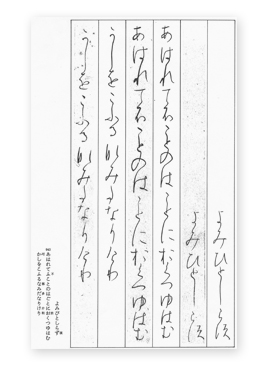 よみひとしらす
よみひとしらす
あはれてふことのはことにおくつゆはむ
あはれてふことのはことにおくつゆはむ
かしをこふるなみたなりけり
かしをこふるなみたなりけり
よみびとしらず
あはれてふことのはごとにおくつゆはむ
かしをこふるなみだなりけり